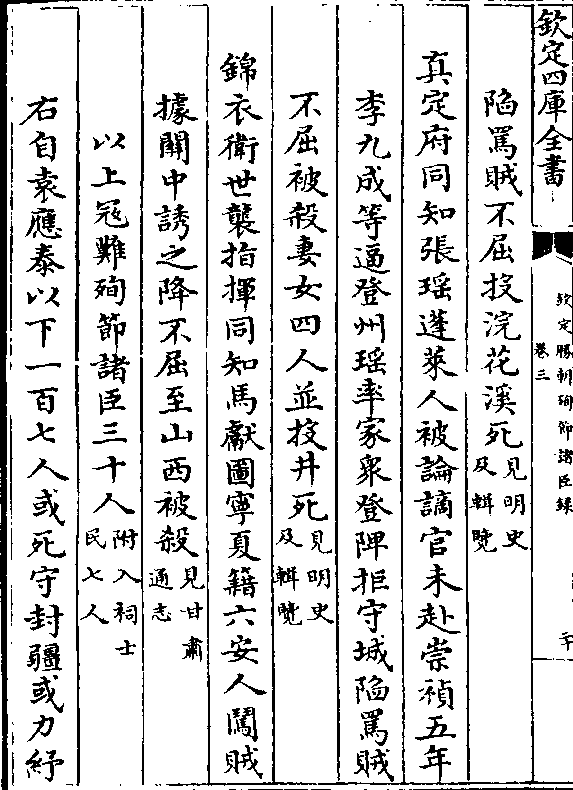 欽定四庫全書
欽定勝朝殉節諸臣錄
卷三
陷罵賊不屈投浣花溪死見明史及輯覽
真定府同知張瑶蓬萊人被論謫官未赴崇禎五年
李九成等逼登州瑶率家衆登陴拒守城陷罵賊
不屈被殺妻女四人並投井死見明史及輯覽
錦衣衛世襲指揮同知馬獻圖寧夏籍六安人闖賊
據關中誘之降不屈至山西被殺見甘肅通志
以上冦難殉節諸臣三十人附入祠士民七人
右自袁應泰以下一百七人或死守封疆或力紓